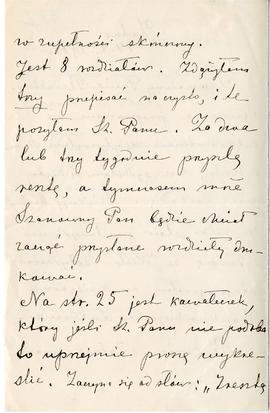 w zupełności skończony.
Jest 8 rozdziałów. Zdążyłam
trzy przepisać na czysto, i te
posyłam Sz. Panu. Za dwa
lub trzy tygodnie przyszlę
resztę, a tymczasem może
Szanowny Pan będzie chciał
zacząć przysłane rozdziały dru-
kować.
Na str. 25 jest kawałeczek,
który jeśli Sz. Panu nie podoba
to uprzejmie proszę wykre-
ślić. Zaczyna się od słów: „Zresztą